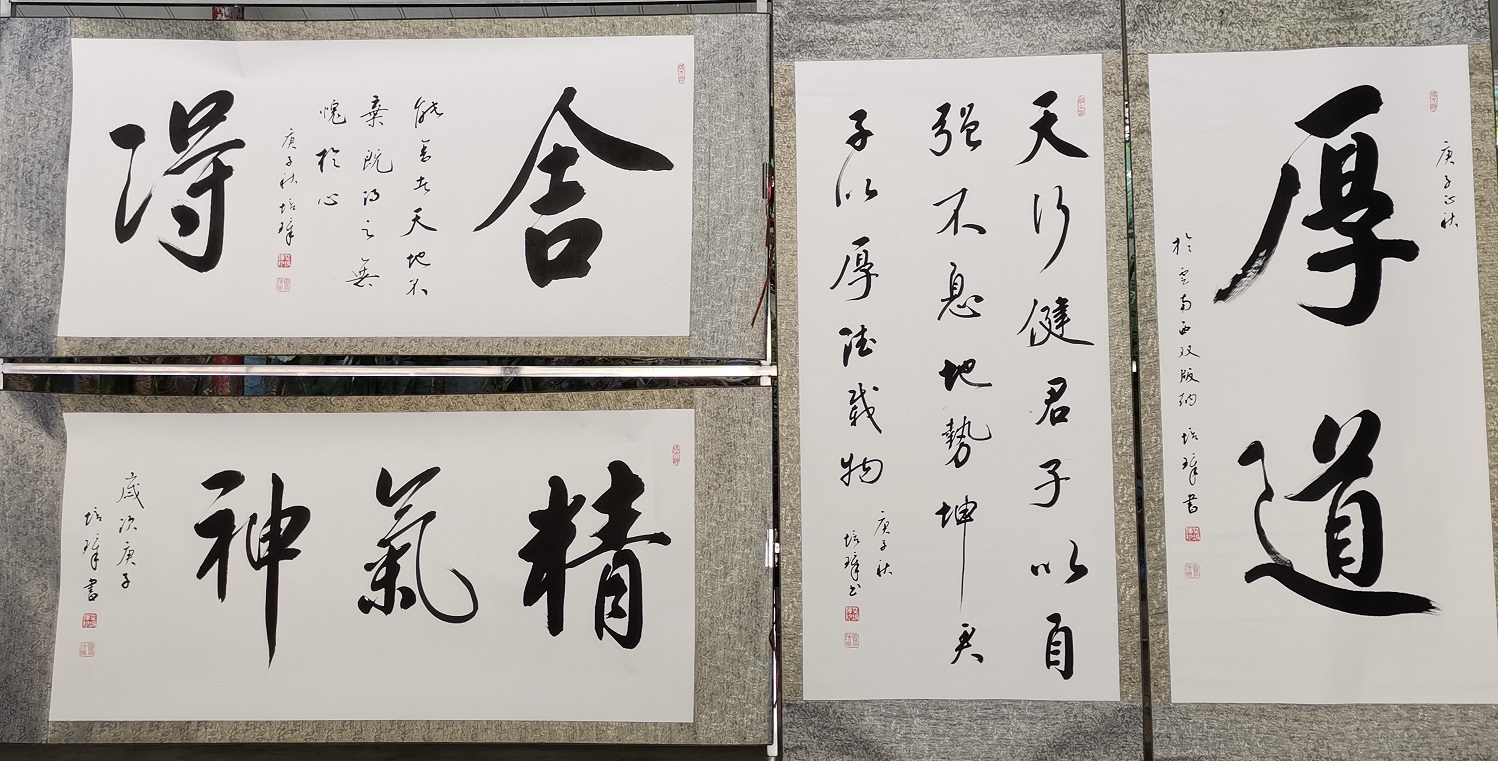 舍
能善者天地不
棄既得之無
愧於心
庚子秋培璋
得
精氣神
歲次庚子
培璋書
天行健君子以自
强不息地勢坤君
子以厚德載物
庚子秋
培璋书
庚子正秋
厚道
於雲南西双版納 培璋書